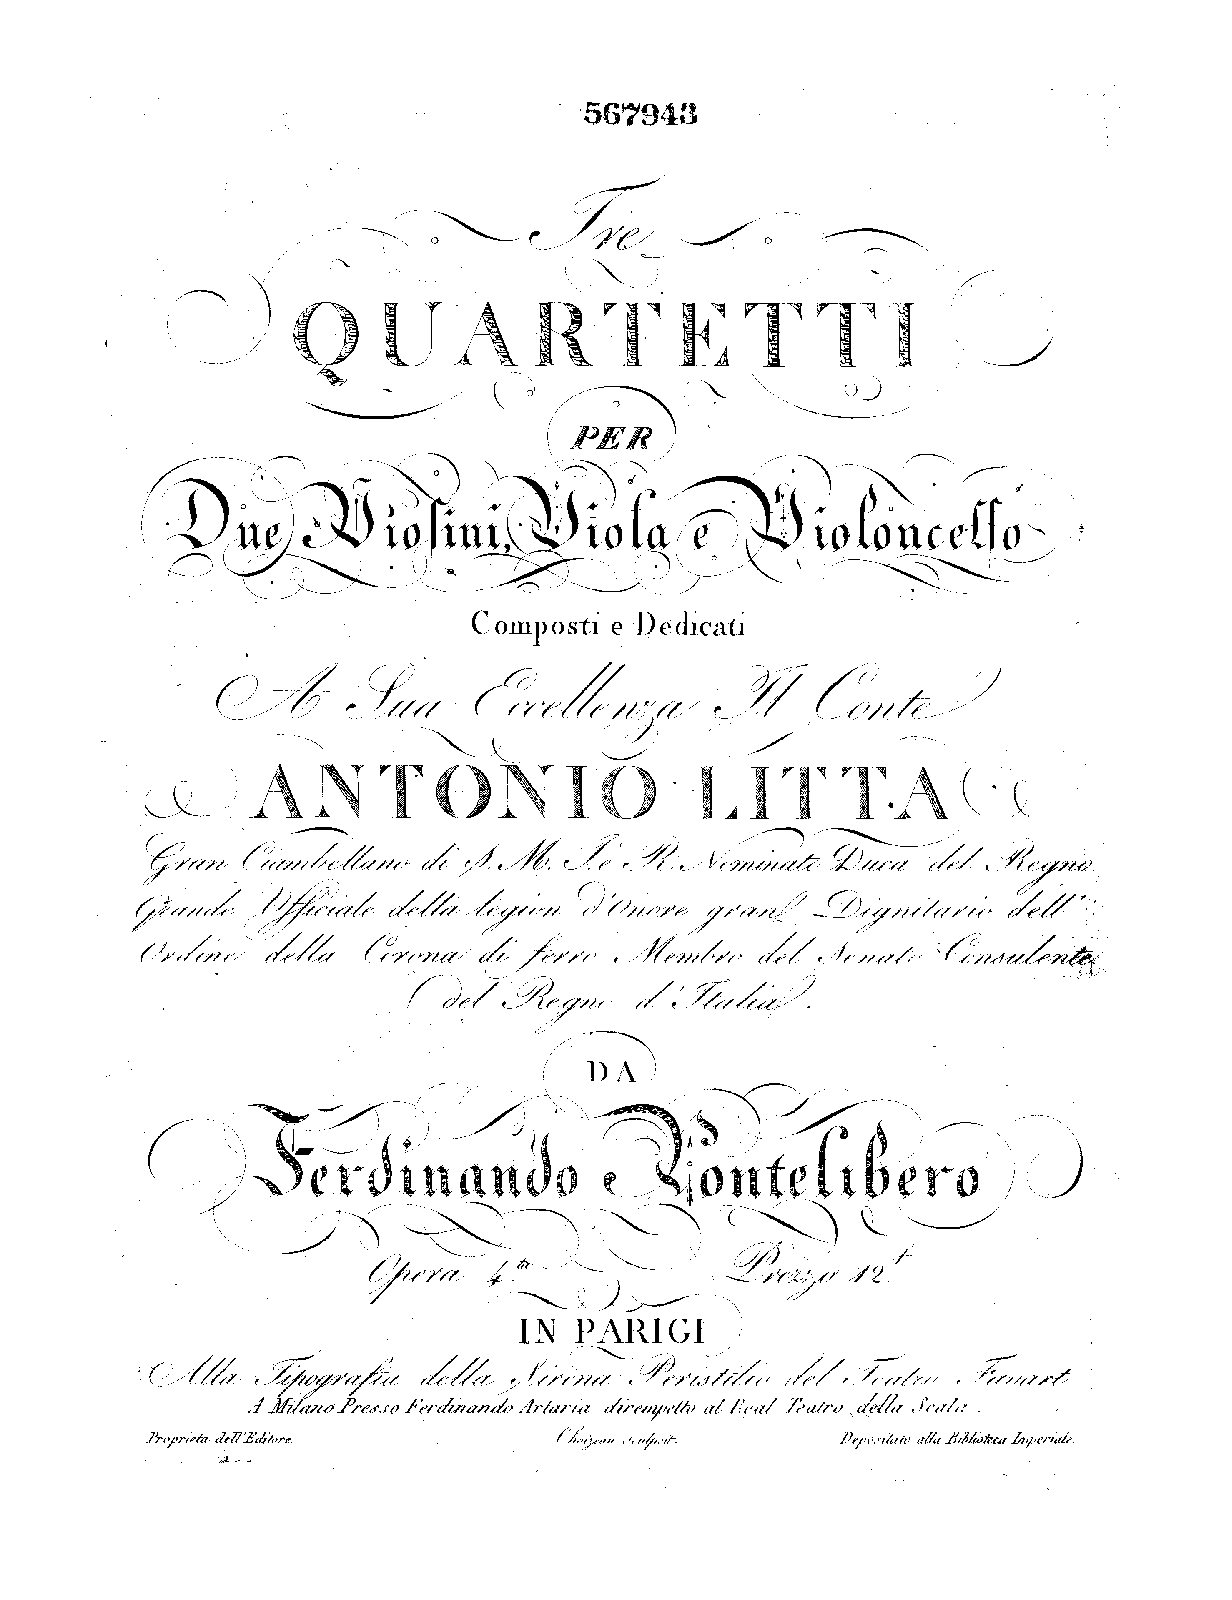 567943
Tre
QUARTETTI
PER
Due Violini, Viola e Violoncello
Composti e Dedicati
A Sua Eccellenza Il Conte
ANTONIO LITTA
Gran Ciambellano di S. M. I. e R. Nominato Duca del Regno
Grande Ufficiale della legion d'Onore gran Dignitario dell'
Ordine della Corona di ferro Membro del Senato Consulente
del Regno d'Italia.
DA
Ferdinando Pontelibero
Opera 4.ta Prezzo 12.f
IN PARIGI
Alla Tipografia della Sirena Peristilio del Teatro Favart
A Milano Presso Ferdinando Artaria dirempetto al Real Teatro della Scala.
Proprieta dell'Editore. sculpsit. Depositato alla Biblioteca Imperiale.